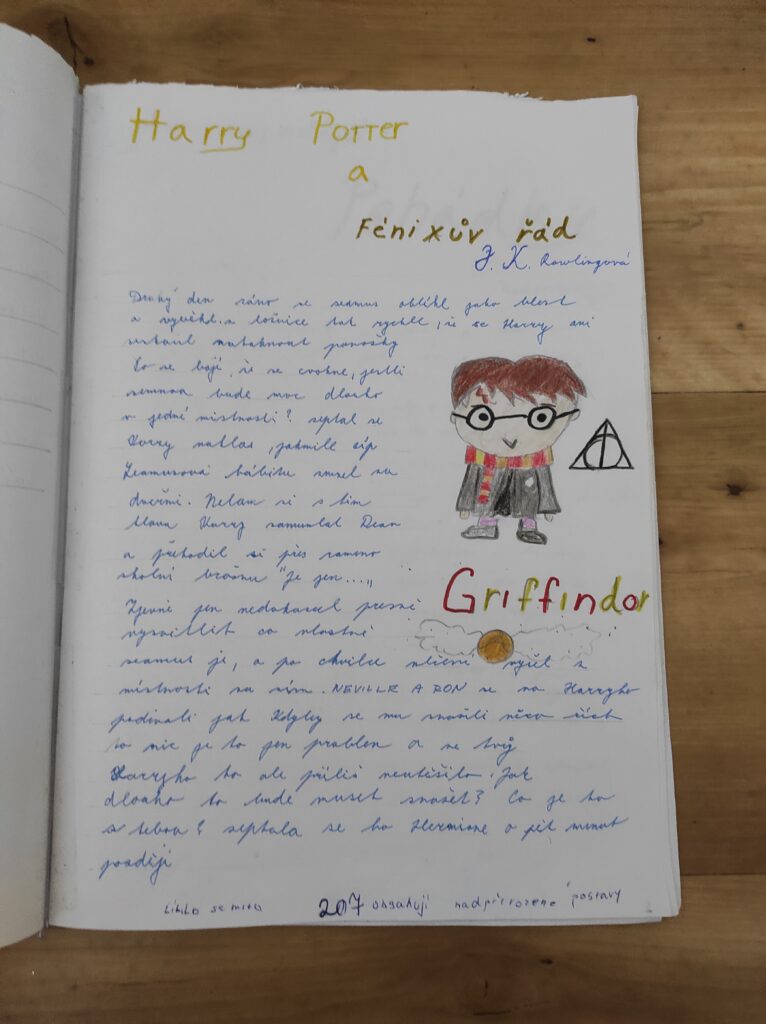 Harry Potter
a
Fénixův řád
J. K. Rowlingová
Druhý den ráno se seamus oblékl jako blesk
a vyběhl z ložnice tak rychle, že se Harry ani
nestačil natáhnout ponožky
Co se bojí, že se cvokne, jestli
semnou bude moc dlouho
v jedné místnosti? septal se
Harry nahlas, jakmile cíp
Seamusova hábitu zmizel za
dveřmi. Nelam si s tím
hlavu Harry zamumlal Dean
a přehodil si přes rameno
školní brašnu "Je jen...„
Zjevně jen nedokázal přesně
vysvětlit co vlastně
seamus je, a po chvilce mlčení vyšel z
místnosti za ním. NEVILLE A RON se na Harryho
podívali jak Kdyby se mu snažili něco říct
to nic je to jen problem a ne tvůj
Harryho to ale příliš neutěšilo. Jak
dlouho to bude muset snášet? Co je to
s tebou? septala se ho Hermione o pět minut
pozdějí
Griffindor
Líbilo se mi to 207 obsahují nadpřirozené postavy